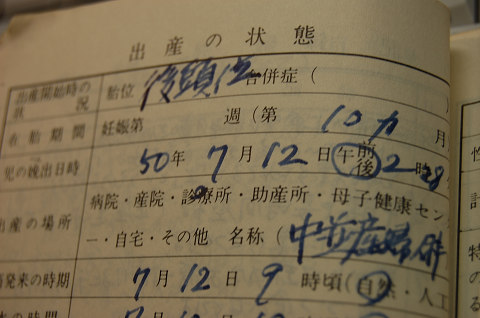 出産の状態
出産開始時の状況 胎位 後頭位 合併症(
在胎期間 妊娠第 週(第 10カ 月
児の娩出日時 50年 7月12日 午前後 2時28
出産の場所 病院・産院・診療所・助産所・母子健康セン
ー・自宅・その他 名称(中並産婦併
発来の時期 7月12日 9時頃(自然・人工
の時間 7月12日
性
計
特
の
る